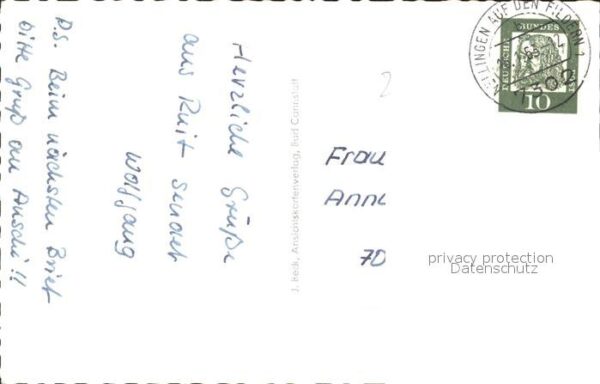 Herzliche Grüße
aus Ruit sendet
Wolfgang
P.S. Beim nächsten Brief
bitte Gruß an Anschi!!
J. Beck, Ansichtskartenverlag, Bad Cannstatt
2
LLINGEN AUF DEN FILDERN 2
7302
DEUTSCHE BUNDES
10
Frau
Anne
70
privacy protection
Datenschutz